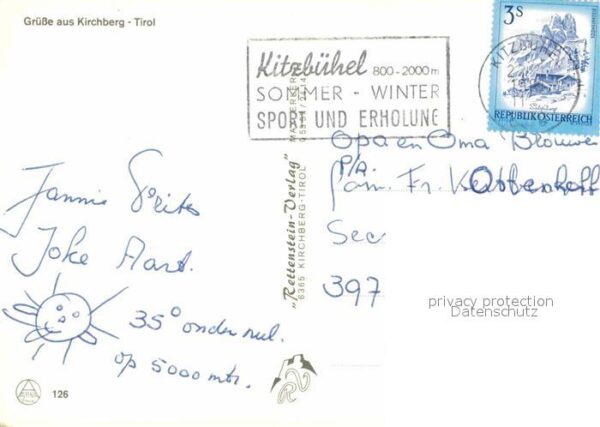 Grüße aus Kirchberg - Tirol
Kitzbühel 800-2000m
SOMMER - WINTER
SPORT UND ERHOLUNG
3s
REPUBLIK ÖSTERREICH
Opa en Oma
P/A.
Fam. Fr. Kattenkeff
Sec
397
Jannie Frits
Joke Aart.
35° onder nul.
op 5000 mtr.
"Rettenstein-Verlag"
6365 KIRCHBERG-TIROL
privacy protection
Datenschutz
126